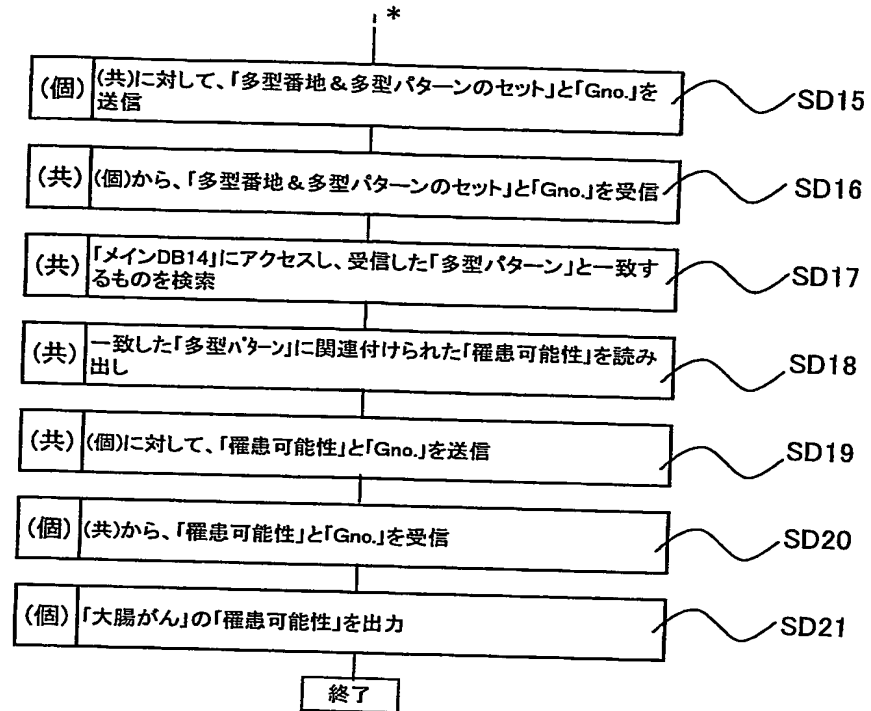 *
(個) (共)に対して、「多型番地&多型パターンのセット」と「Gno.」を
送信
SD15
(共) (個)から、「多型番地&多型パターンのセット」と「Gno.」を受信
SD16
(共) 「メインDB14」にアクセスし、受信した「多型パターン」と一致す
るものを検索
SD17
(共) 一致した「多型パターン」に関連付けられた「罹患可能性」を読み
出し
SD18
(共) (個)に対して、「罹患可能性」と「Gno.」を送信
SD19
(個) (共)から、「罹患可能性」と「Gno.」を受信
SD20
(個) 「大腸がん」の「罹患可能性」を出力
SD21
終了